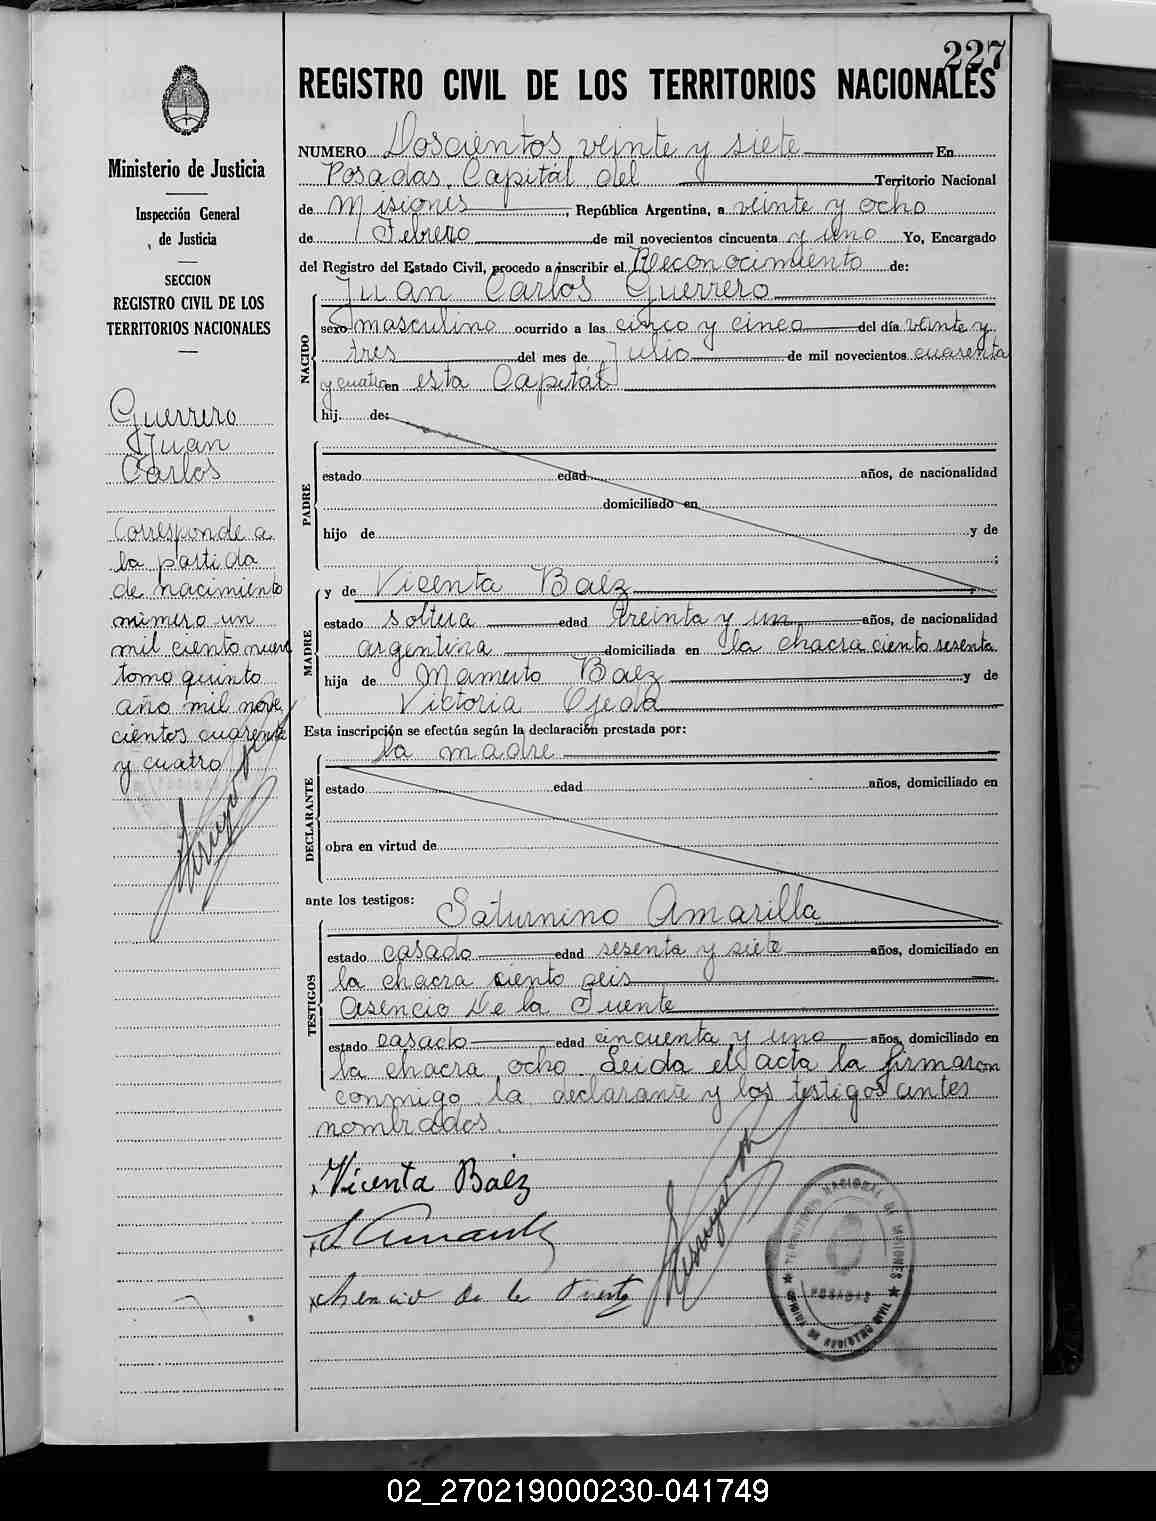 227
REGISTRO CIVIL DE LOS TERRITORIOS NACIONALES
Ministerio de Justicia
Inspección General
de Justicia
SECCION
REGISTRO CIVIL DE LOS
TERRITORIOS NACIONALES
Guerrero
Juan
Carlos
Corresponde a
la partida
de nacimiento
número un
mil ciento nueve
tomo quinto
año mil nove
cientos cuarenta
y cuatro
NUMERO Doscientos veinte y siete En
Posadas, Capitál del Territorio Nacional
de Misiones, República Argentina, a veinte y ocho
de Febrero de mil novecientos cincuenta y uno Yo, Encargado
del Registro del Estado Civil, procedo a inscribir el Reconocimiento de:
Juan Carlos Guerrero
NACIDO
sexo masculino ocurrido a las cinco y cinco del día veinte y
tres del mes de Julio de mil novecientos cuarenta
y cuatro en esta Capitál
hij de:
PADRE
estado edad años, de nacionalidad
domiciliado en
hijo de y de
;
MADRE
y de Vicenta Baéz
estado soltera edad treinta y un años, de nacionalidad
argentina domiciliada en la chacra ciento sesenta
hija de Mamerto Baéz y de
Victoria Ojeda
Esta inscripción se efectúa según la declaración prestada por:
la madre
DECLARANTE
estado edad años, domiciliado en
obra en virtud de
ante los testigos:
Saturnino Amarilla
TESTIGOS
estado casado edad sesenta y siete años, domiciliado en
la chacra ciento seis
Asencio De la Fuente
estado casado edad cincuenta y uno años, domiciliado en
la chacra ocho. Leida el acta la firmaron
conmigo la declarante y los testigos antes
nombrados.
Vicenta Baéz
S Amarilla
Asencio de la Fuente
TERRITORIO NACIONAL DE MISIONES
POSADAS
OFICINA DE REGISTRO CIVIL
02_270219000230-041749